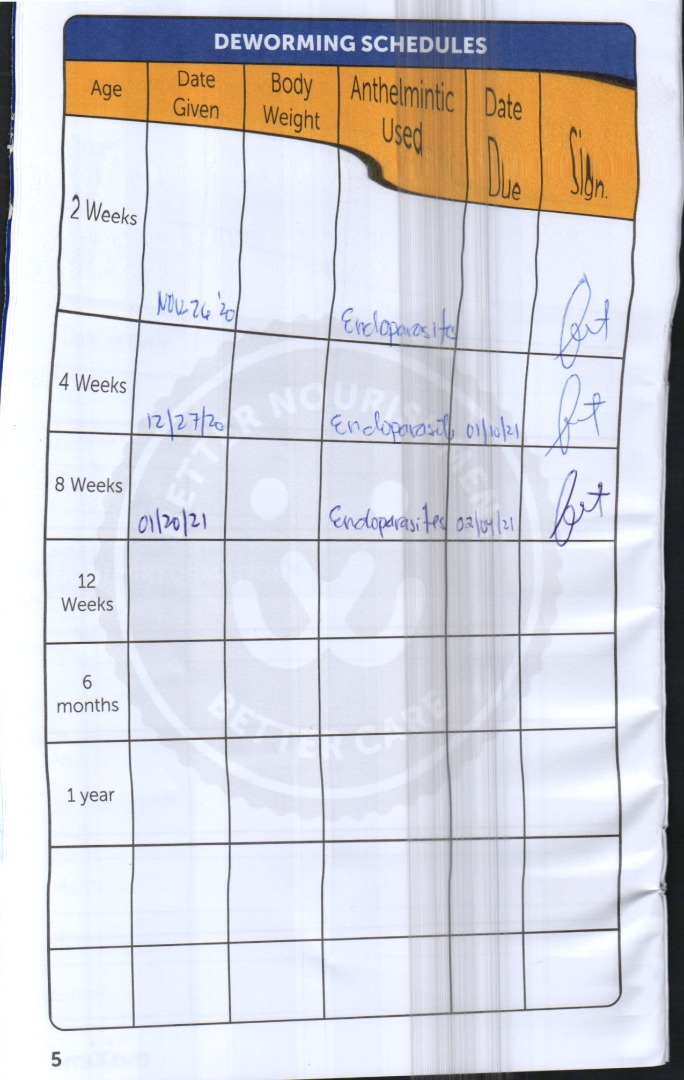 DEWORMING SCHEDULES
Age
Date
Given
Body
Weight
Anthelmintic
Used
Date
Due
Sign.
2 Weeks
Nov. 26 '20
Endoparasite
4 Weeks
12/27/20
Endoparasite 01/10/21
8 Weeks
01/20/21
Endoparasites 02/04/21
12
Weeks
6
months
1 year
BETTER NOURISHMENT
BETTER CARE
5